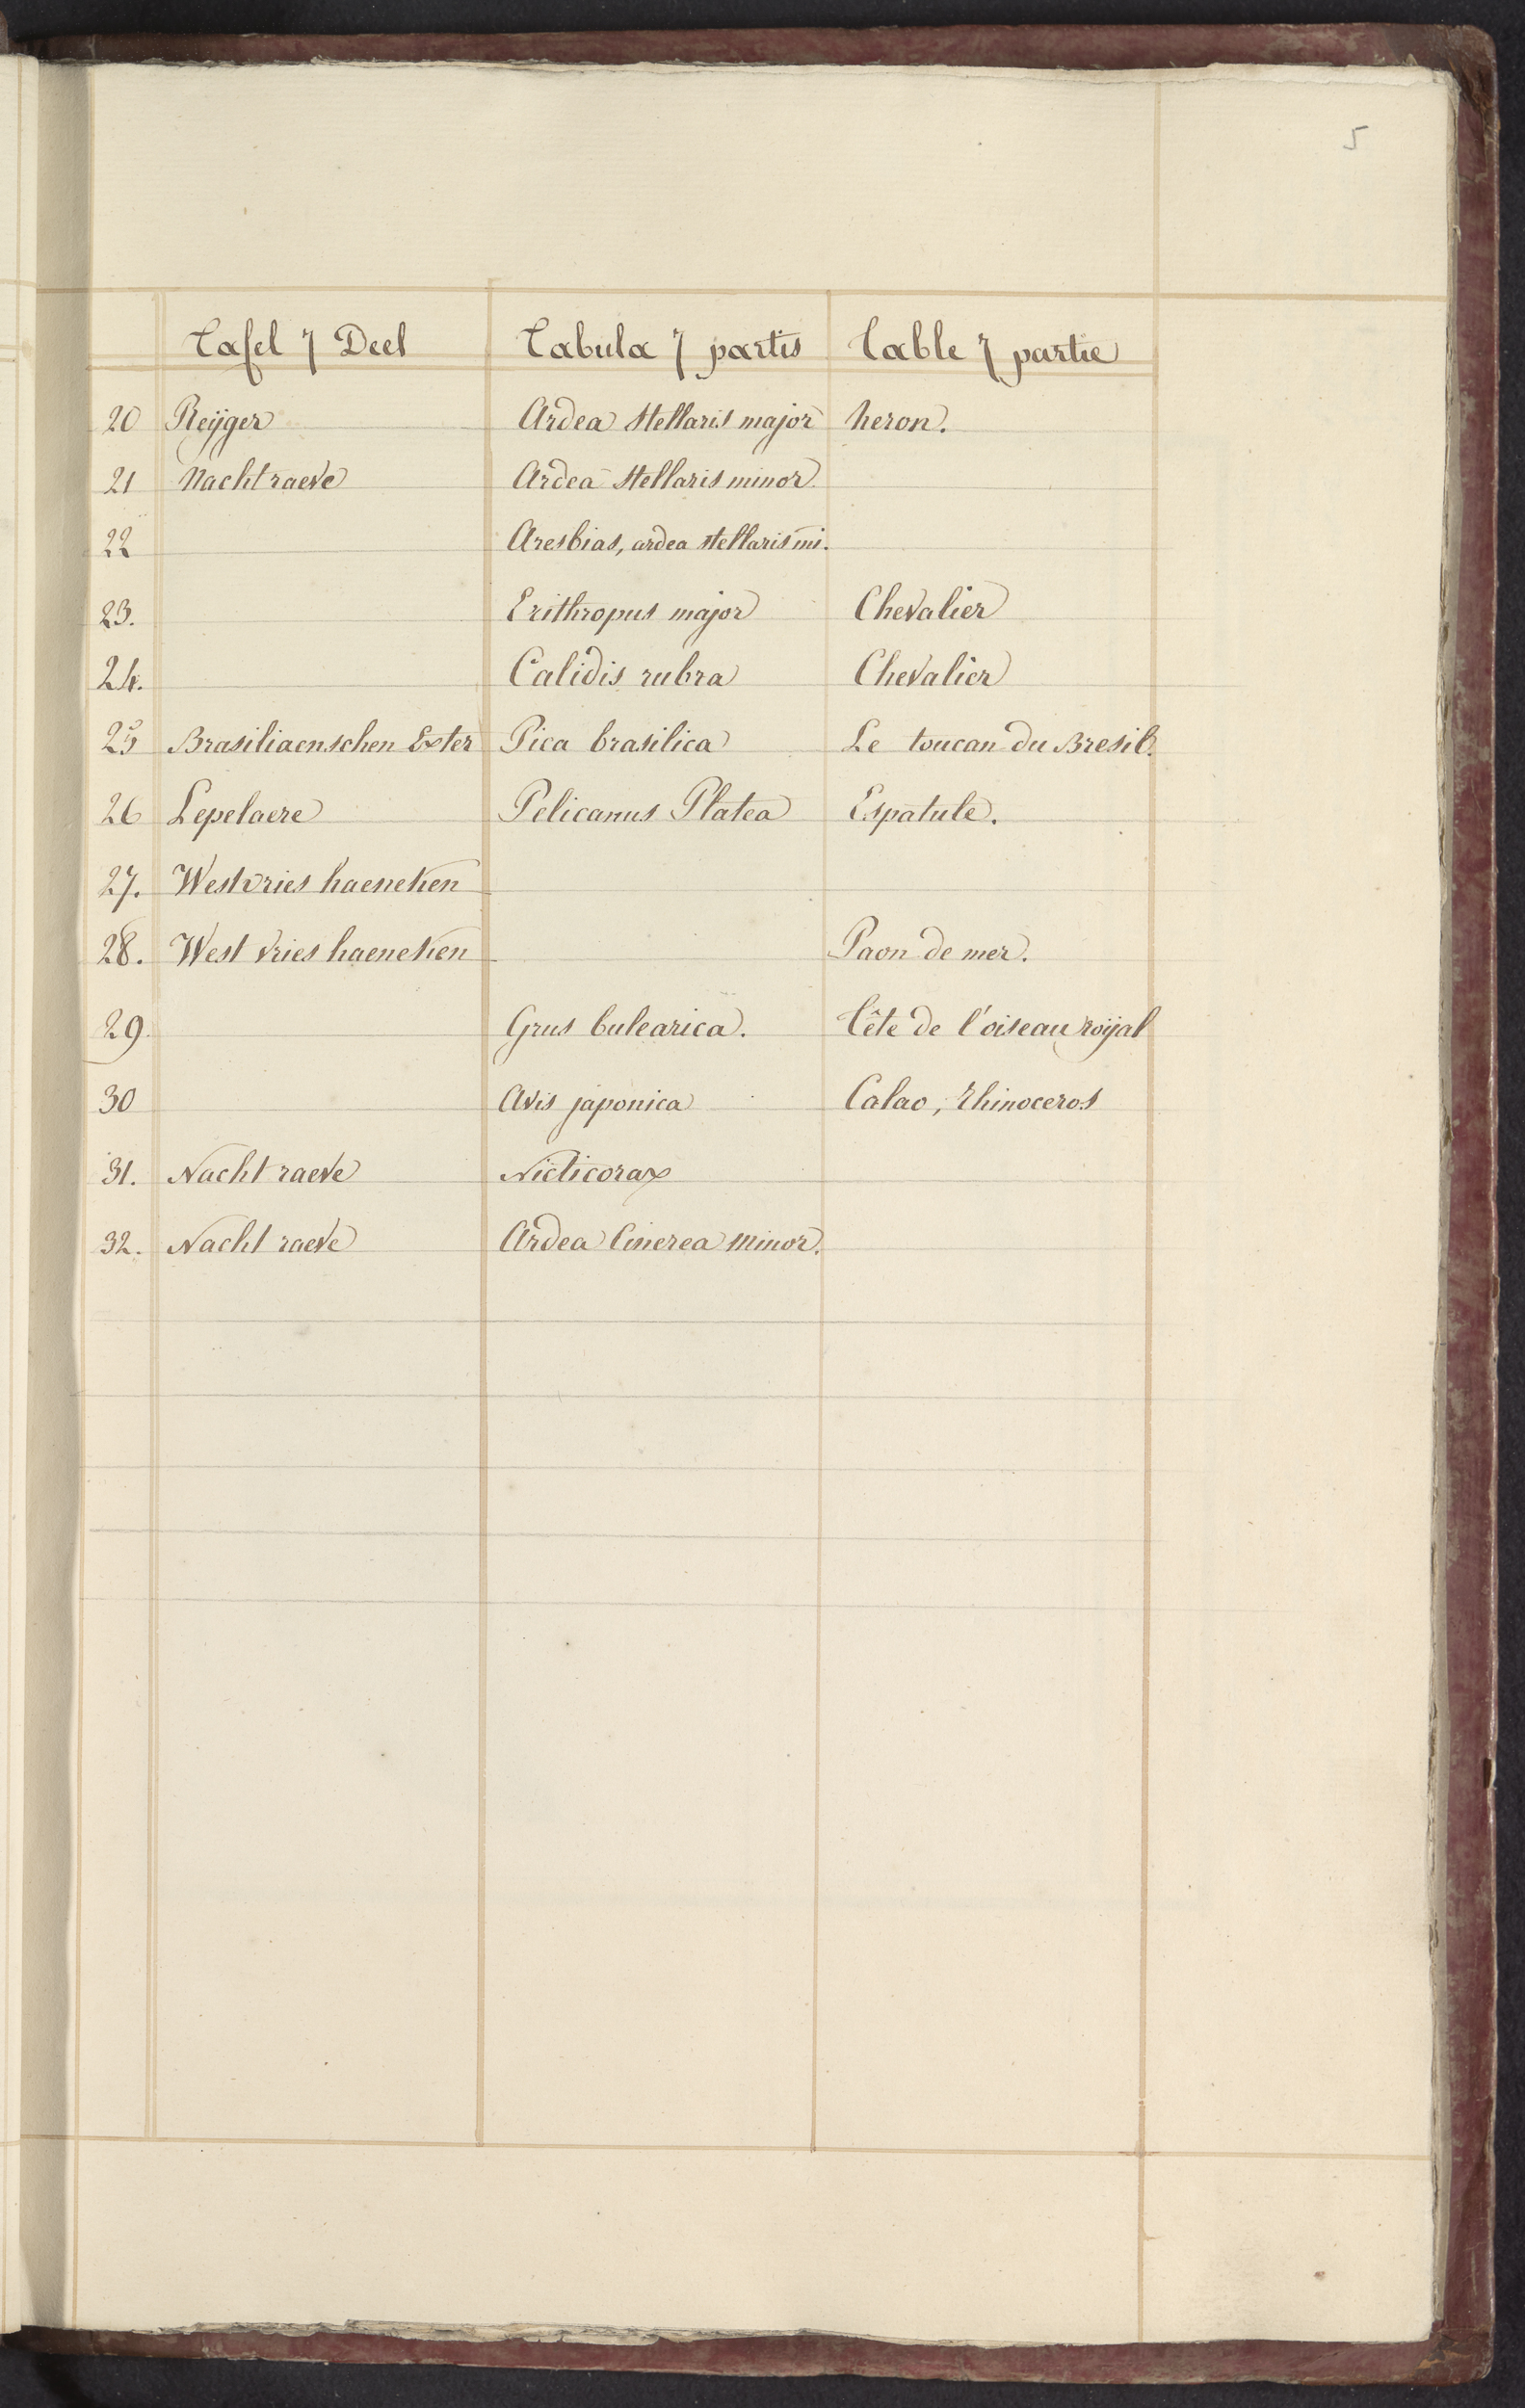 5
Tafel 7 Deel Tabula 7 partis Table 7 partie
20 Reÿger Ardea stellaris major heron.
21 Nachtraeve Ardea stellaris minor.
22 Aresbias, ardea stellaris mi.
23. Erithropus major Chevalier
24. Calidis rubra Chevalier
25 Brasiliaenschen Exter Pica brasilica Le toucan du Bresil.
26 Lepelaere Pelicanus Platea Espatule.
27. Westvries haeneken
28. West vries haeneken Paon de mer.
29. Grus bulearica. Tête de l'oiseau roÿal
30 Avis japonica Calao, rhinoceros
31. Nacht raeve Nicticorax
32. Nacht raeve Ardea Cinerea minor.